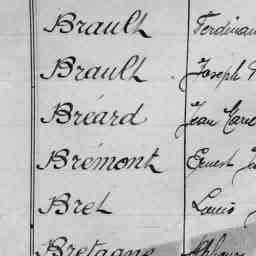 Brault Ferdinan
Brault Joseph
Bréard Jean Marie
Brémont Ernest
Bret Louis
Bretagne